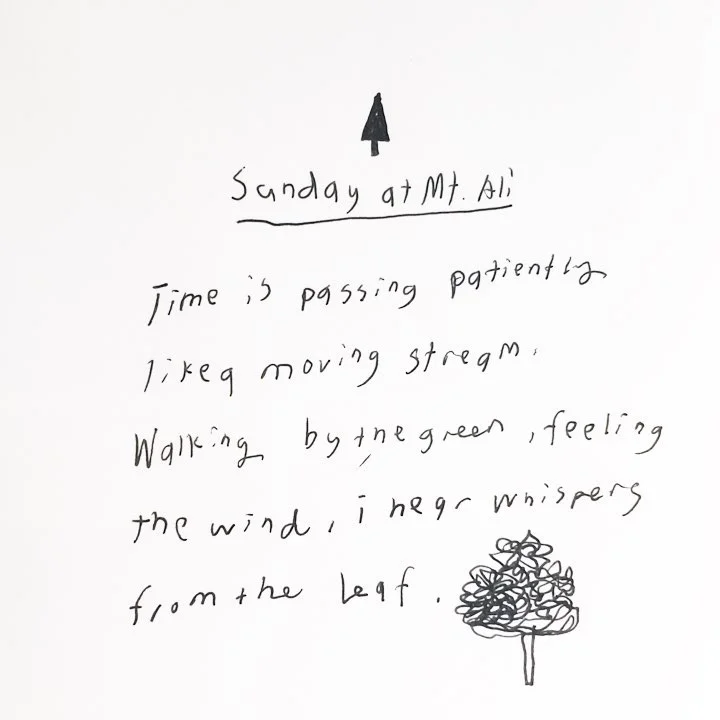 Sunday at Mt. Ali
Time is passing patiently
like a moving stream.
Walking by the green, feeling
the wind, i hear whispers
from the leaf.